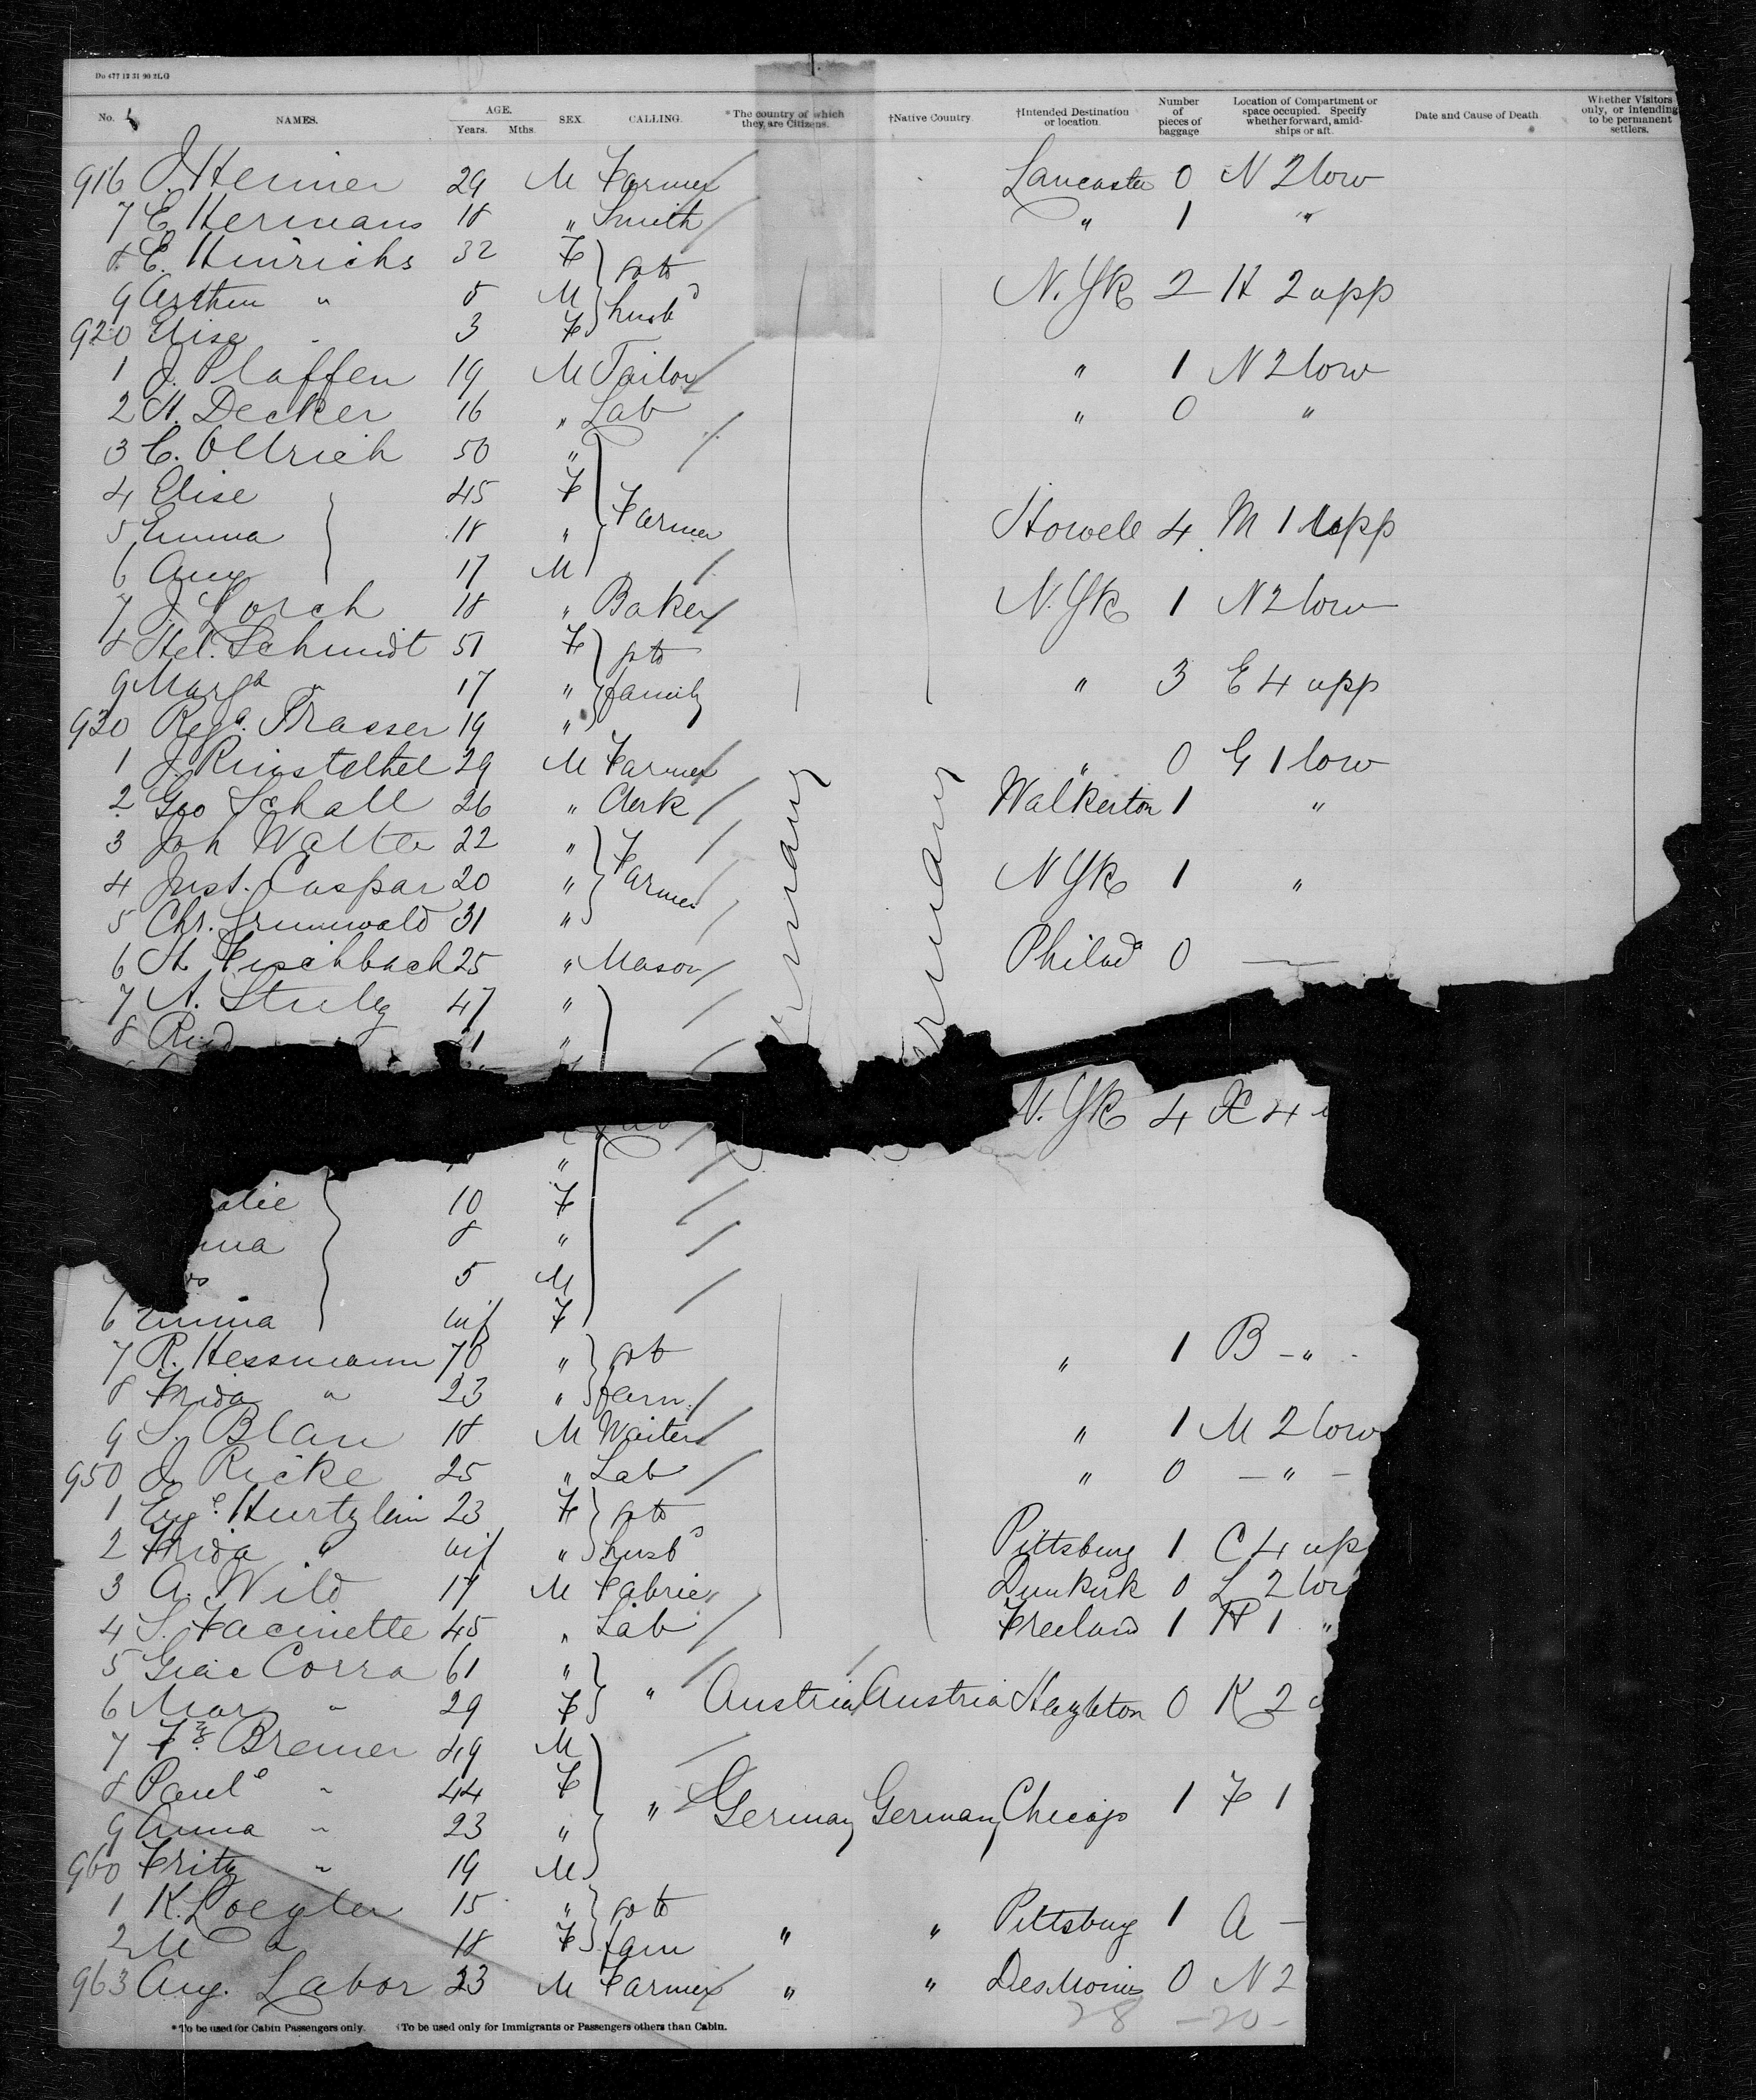 Do 477 12 31 90 2LG
No. NAMES. AGE. Years. Mths. SEX. CALLING. *The country of which they are Citizens. †Native Country. †Intended Destination or location. Number of pieces of baggage Location of Compartment or space occupied. Specify whether forward, amidships or aft. Date and Cause of Death. Whether Visitors only, or intending to be permanent settlers.
916 J. Hermer 29 M Farmer Lancaster 0 N 2 low
7 E. Hermans 18 " Smith " 1 "
8 E. Hinrichs 32 F } to
9 Arthur " 5 M } husbd N. Yk 2 H 2 upp
920 Elise " 3 F
1 J. Plaffen 19 M Tailor " 1 N 2 low
2 H. Decker 16 " Lab " 0 "
3 C. Ollrich 50 "
4 Elise 45 F
5 Emma 18 " Farmer Howell 4 M 1 upp
6 Aug 17 M
7 J. Lorch 18 " Baker N. Yk 1 N 2 low
8 Hel. Schmidt 51 F } to
9 Marga " 17 " } family " 3 E 4 upp
930 Rega. Trasser 19 "
1 J. 29 M Farmer " 0 G 1 low
2 Geo Schall 26 " Clerk Walkerton 1 "
3 Joh Walter 22 "
4 Just. Caspar 20 " Farmer N Yk 1 "
5 Chr. Grunwald 31 "
6 H. Fischbach 25 " Mason Philada 0 —
7 A. 47 "
8 Rud 21 "
N. Yk 4 4
"
10 F
8 "
5 M
6 Emma inf F
7 R. Hessmann 70 " } to " 1 B - " -
8 Frida " 23 " } fam.
9 S. Blau 18 M Waiter " 1 M 2 low
950 J. Ricke 25 " Lab " 0 — " —
1 Euge. Hurtzlein 23 F } to
2 Frida " inf " } husbd Pittsburg 1 C 4 up
3 A. Wild 17 M Fabric. Dunkirk 0 L 2 low
4 S. Facinette 45 " Lab Freeland 1 H 1 "
5 Giac Corra 61 "
6 Mar " 29 F } " Austria Austria Hazleton 0 K 2
7 Fz. Bremer 49 M
8 Paule " 44 F
9 Anna " 23 " " Germany Germany Chicago 1 F 1
960 Fritz " 19 M
1 K. Loegler 15 " } to
2 M " 18 F } fam " " Pittsburg 1 A —
963 Aug. Labor 23 M Farmer " " Des Moines 0 N 2
28 -20-
*To be used for Cabin Passengers only. †To be used only for Immigrants or Passengers others than Cabin.